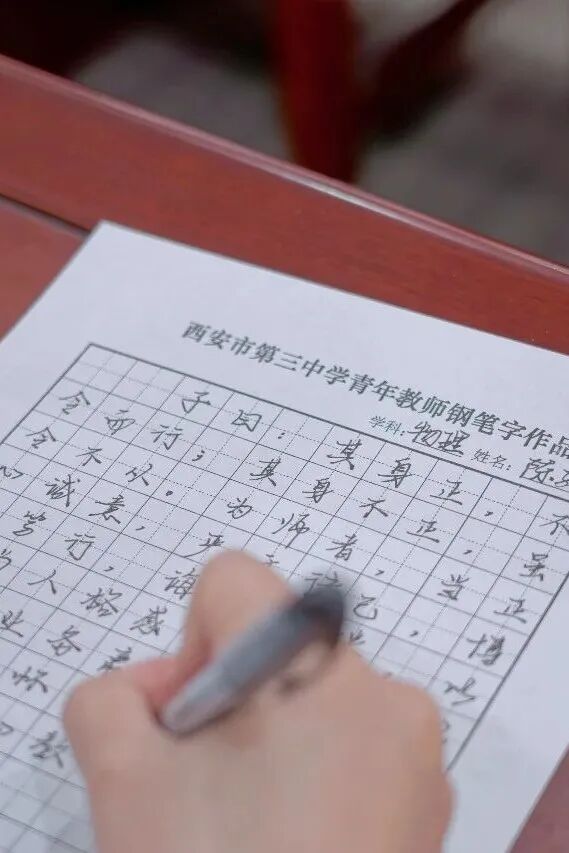 西安市第三中学青年教师钢笔字作品
学科:物理 姓名:陈
子曰:其身正,不
令而行;其身不正,虽
令不从。为师者,当正
心诚意,严于律己,博
笃行,诲以
人格感
业务
怀
教